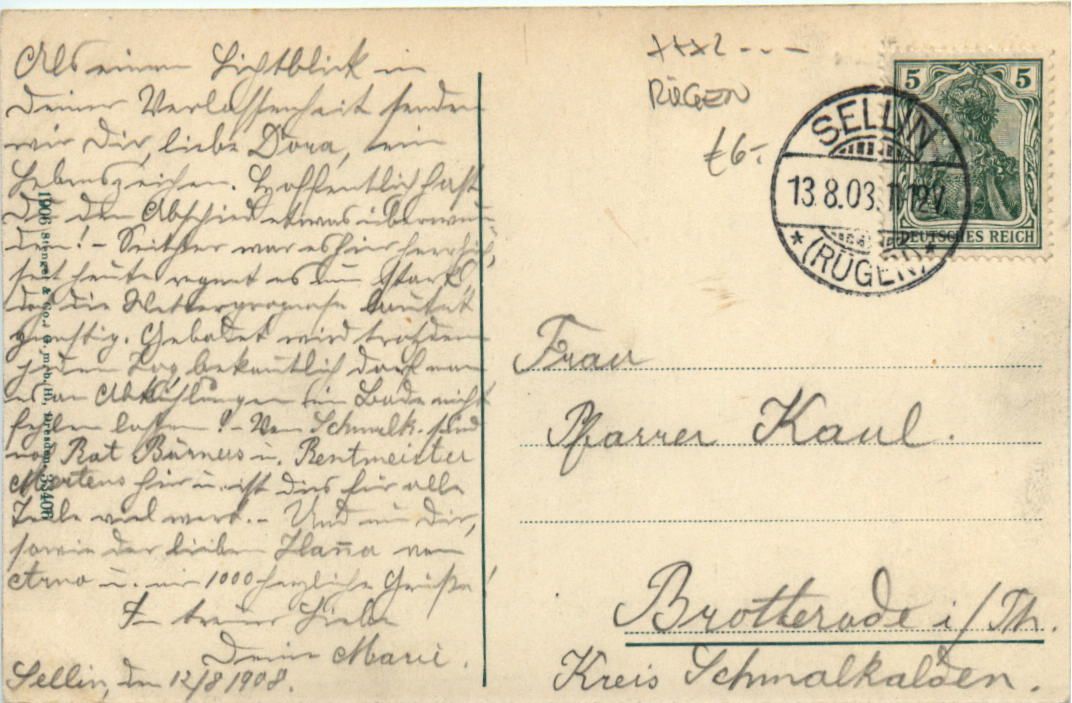 Als einen Lichtblick in
Deiner Verlassenheit senden
wir Dir, liebe Dora, ein
Lebenszeichen. Hoffentlich hast
Du den Abschied etwas überwun-
den! - Seither war es hier herrlich,
seit heute regnet es nun stark,
doch die Wetterprognose lautet
günstig. Gebadet wird trotzdem
jeden Tag, bekanntlich darf man
es an Abkühlungen im Bade nicht
fehlen lassen! - Von Schmalk. sind
noch Rat Bürners u. Rentmeister
Mertens hier u. ist dies für alle
Teile viel wert. - Und nun Dir,
sowie der lieben Hanna von
Arno u. mir 1000 herzliche Grüße!
In treuer Liebe
Deine Marie.
Sellin, den 12/8 1908.
1906 Stengel & Co., G.m.b.H., Dresden. 33406
RÜGEN
£6.-
5 5
DEUTSCHES REICH
SELLIN
13.8.08.11-12V
*(RÜGEN)*
Frau
Pfarrer Kaul.
Brotterode i/Th.
Kreis Schmalkalden.